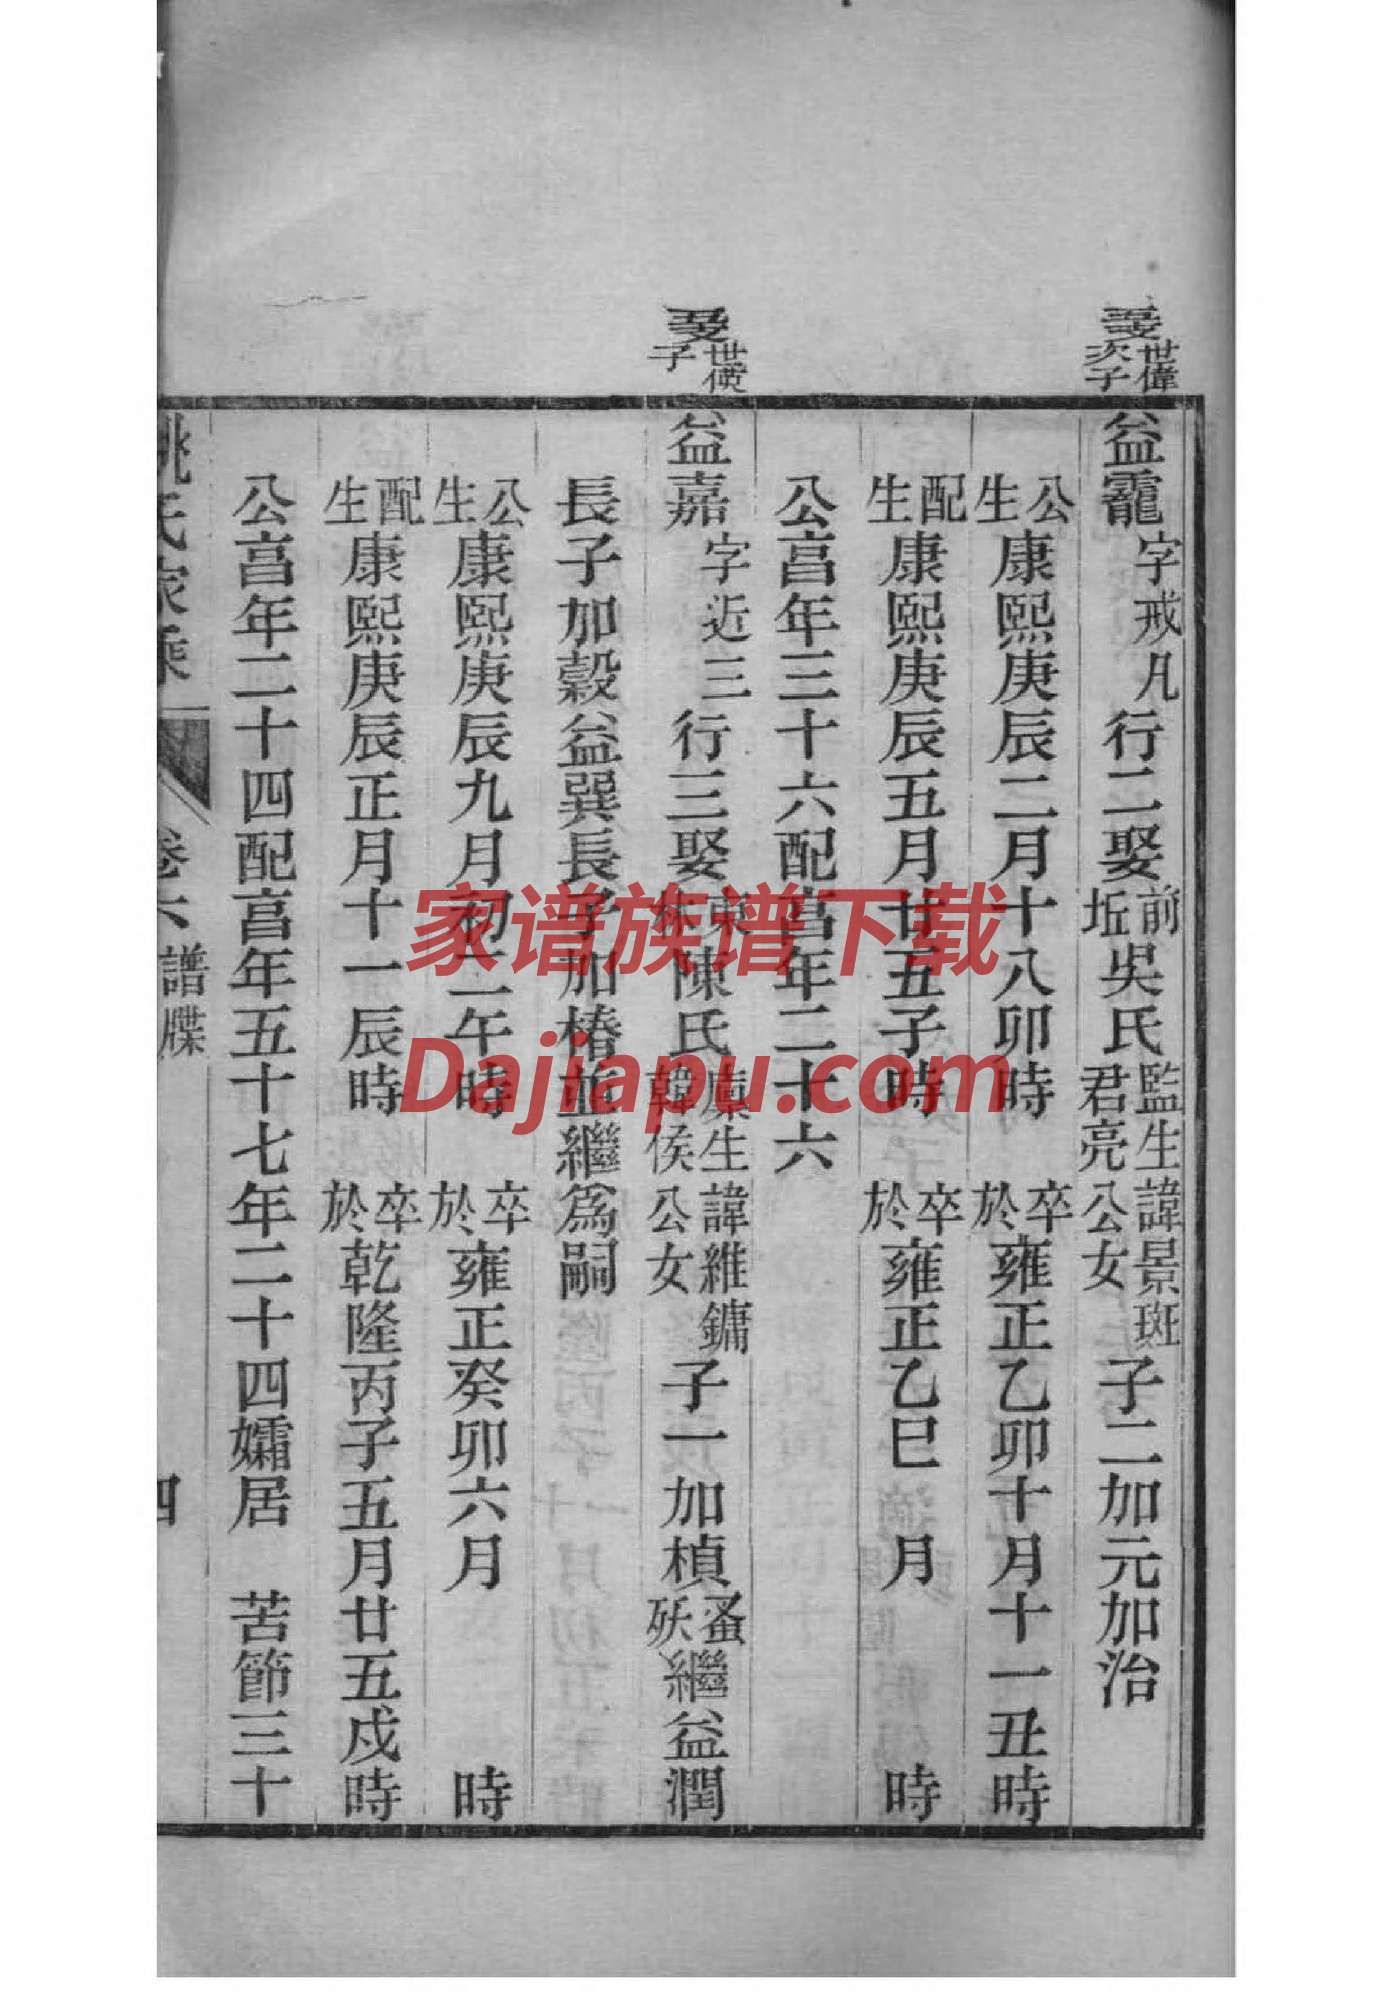 世偉次子
益竉 字戒凡 行二娶前坵吳氏監生諱景斑君亮公女 子二加元加治
公生康熙庚辰二月十八卯時 卒於雍正乙卯十月十一丑時
配生康熙庚辰五月廿五子時 卒於雍正乙巳 月 時
公亯年三十六配亯年二十六
世僙子
益嘉 字近三 行三娶東林陳氏廩生諱維鏞韓侯公女 子一加楨蚤殀繼益潤
長子加穀益巽長子加椿並繼爲嗣
公生康熙庚辰九月初二午時 卒於雍正癸卯六月 時
配生康熙庚辰正月十一辰時 卒於乾隆丙子五月廿五戌時
公亯年二十四配亯年五十七年二十四孀居 苦節三十
姚氏家乘 卷六 譜牒 四
家谱族谱下载
Dajiapu.com